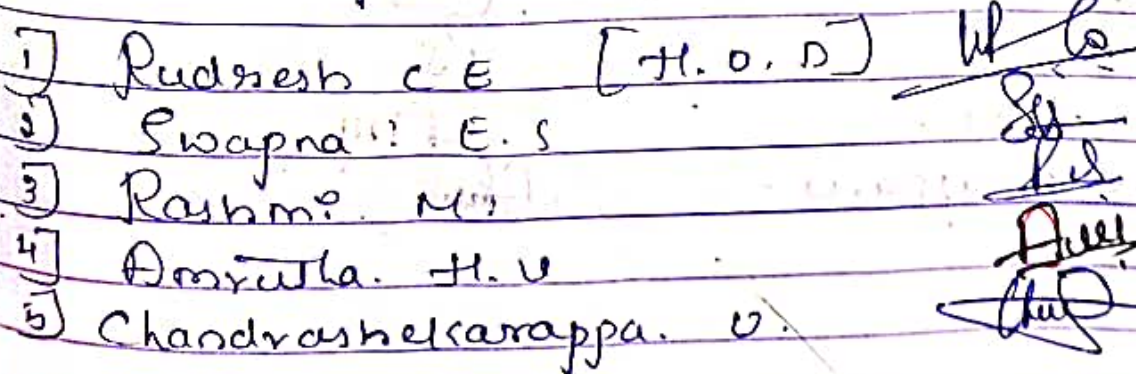 1] Rudresh C E [H.O.D]
2) Swapna E.S
3] Rashmi M
4] Amrutha. H.U
5) Chandrashekarappa. U.